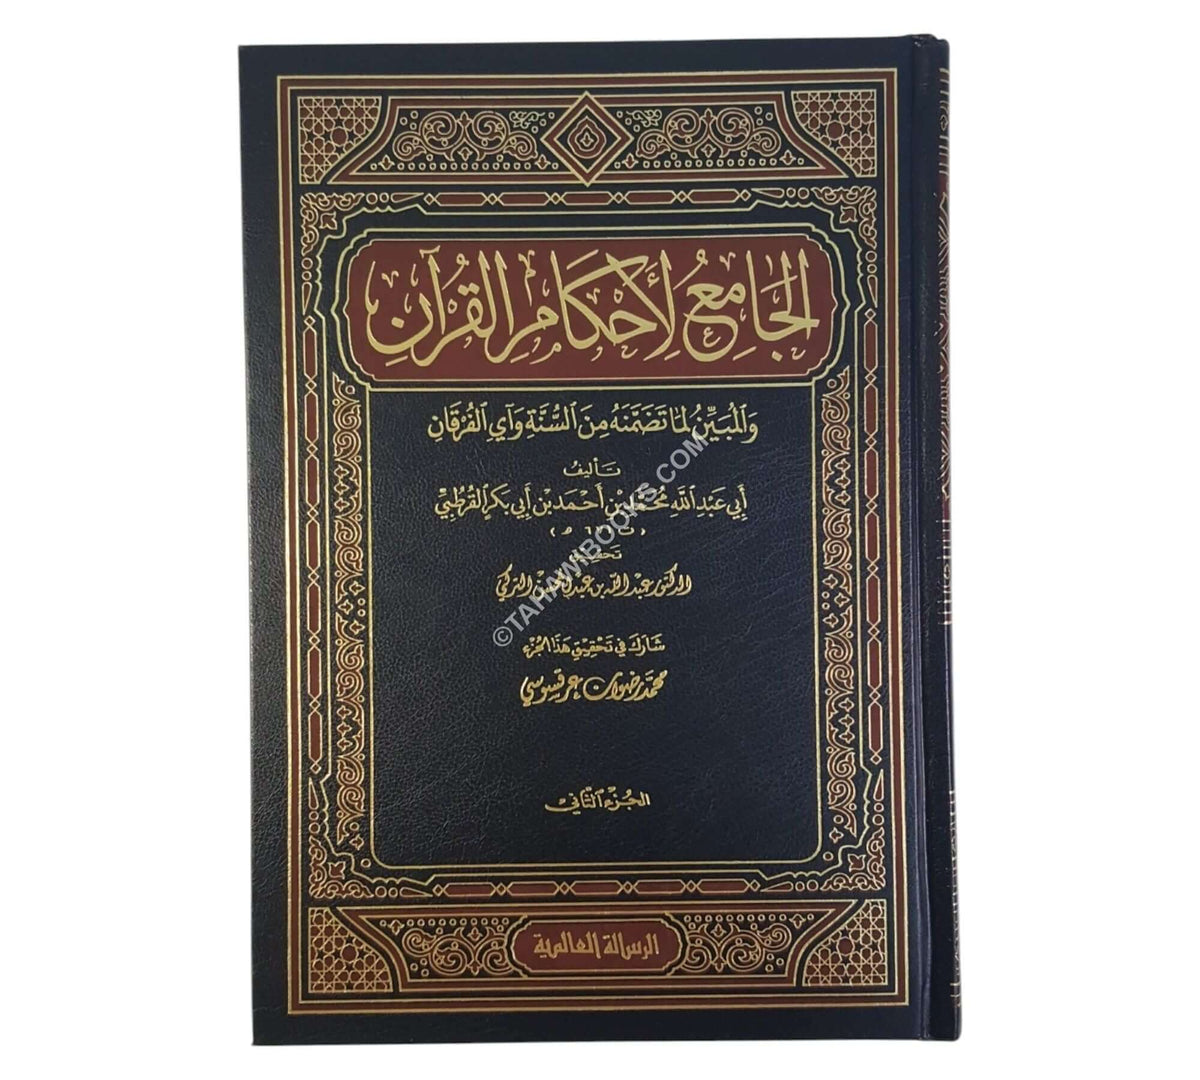 الجَامِعُ لِأَحْكَامِ القُرْآنِ
وَالمُبَيِّنُ لِمَا تَضَمَّنَهُ مِنَ السُّنَّةِ وَآيِ الفُرْقَانِ
تَأليفُ
أَبِي عَبْدِ اللَّهِ مُحَمَّدِ بْنِ أَحْمَدَ بْنِ أَبِي بَكْرٍ القُرْطُبِيِّ
( ت ٦٧١ هـ )
تحقيق
الدكتور عبد الله بن عبد المحسن التركي
شَارَكَ فِي تَحْقِيقِ هَذَا الجُزْءِ
محمّد رضوان عرقسوسي
الجُزْءُ الثَّانِي
الرسالة العالمية
©TAHAWIBOOKS.COM